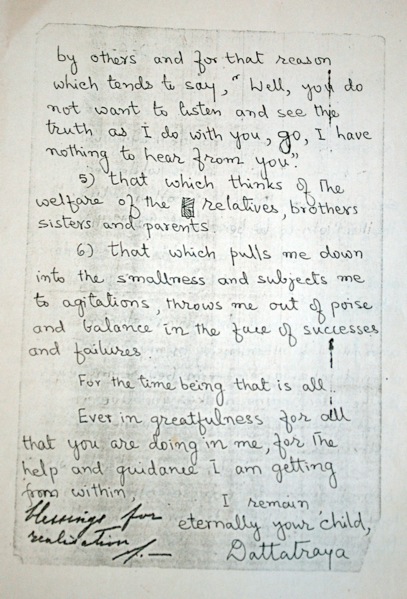 by others and for that reason
which tends to say, "Well, you do
not want to listen and see the
truth as I do with you, go, I have
nothing to hear from you."
5) that which thinks of the
welfare of the relatives, brothers
sisters and parents
6) that which pulls me down
into the smallness and subjects me
to agitations, throws me out of poise
and balance in the face of successes
and failures.
For the time being that is all..
Ever in greatfulness for all
that you are doing in me, for the
help and guidance I am getting
from within,
I remain
eternally your child,
Dattatraya
blessings for
realisation